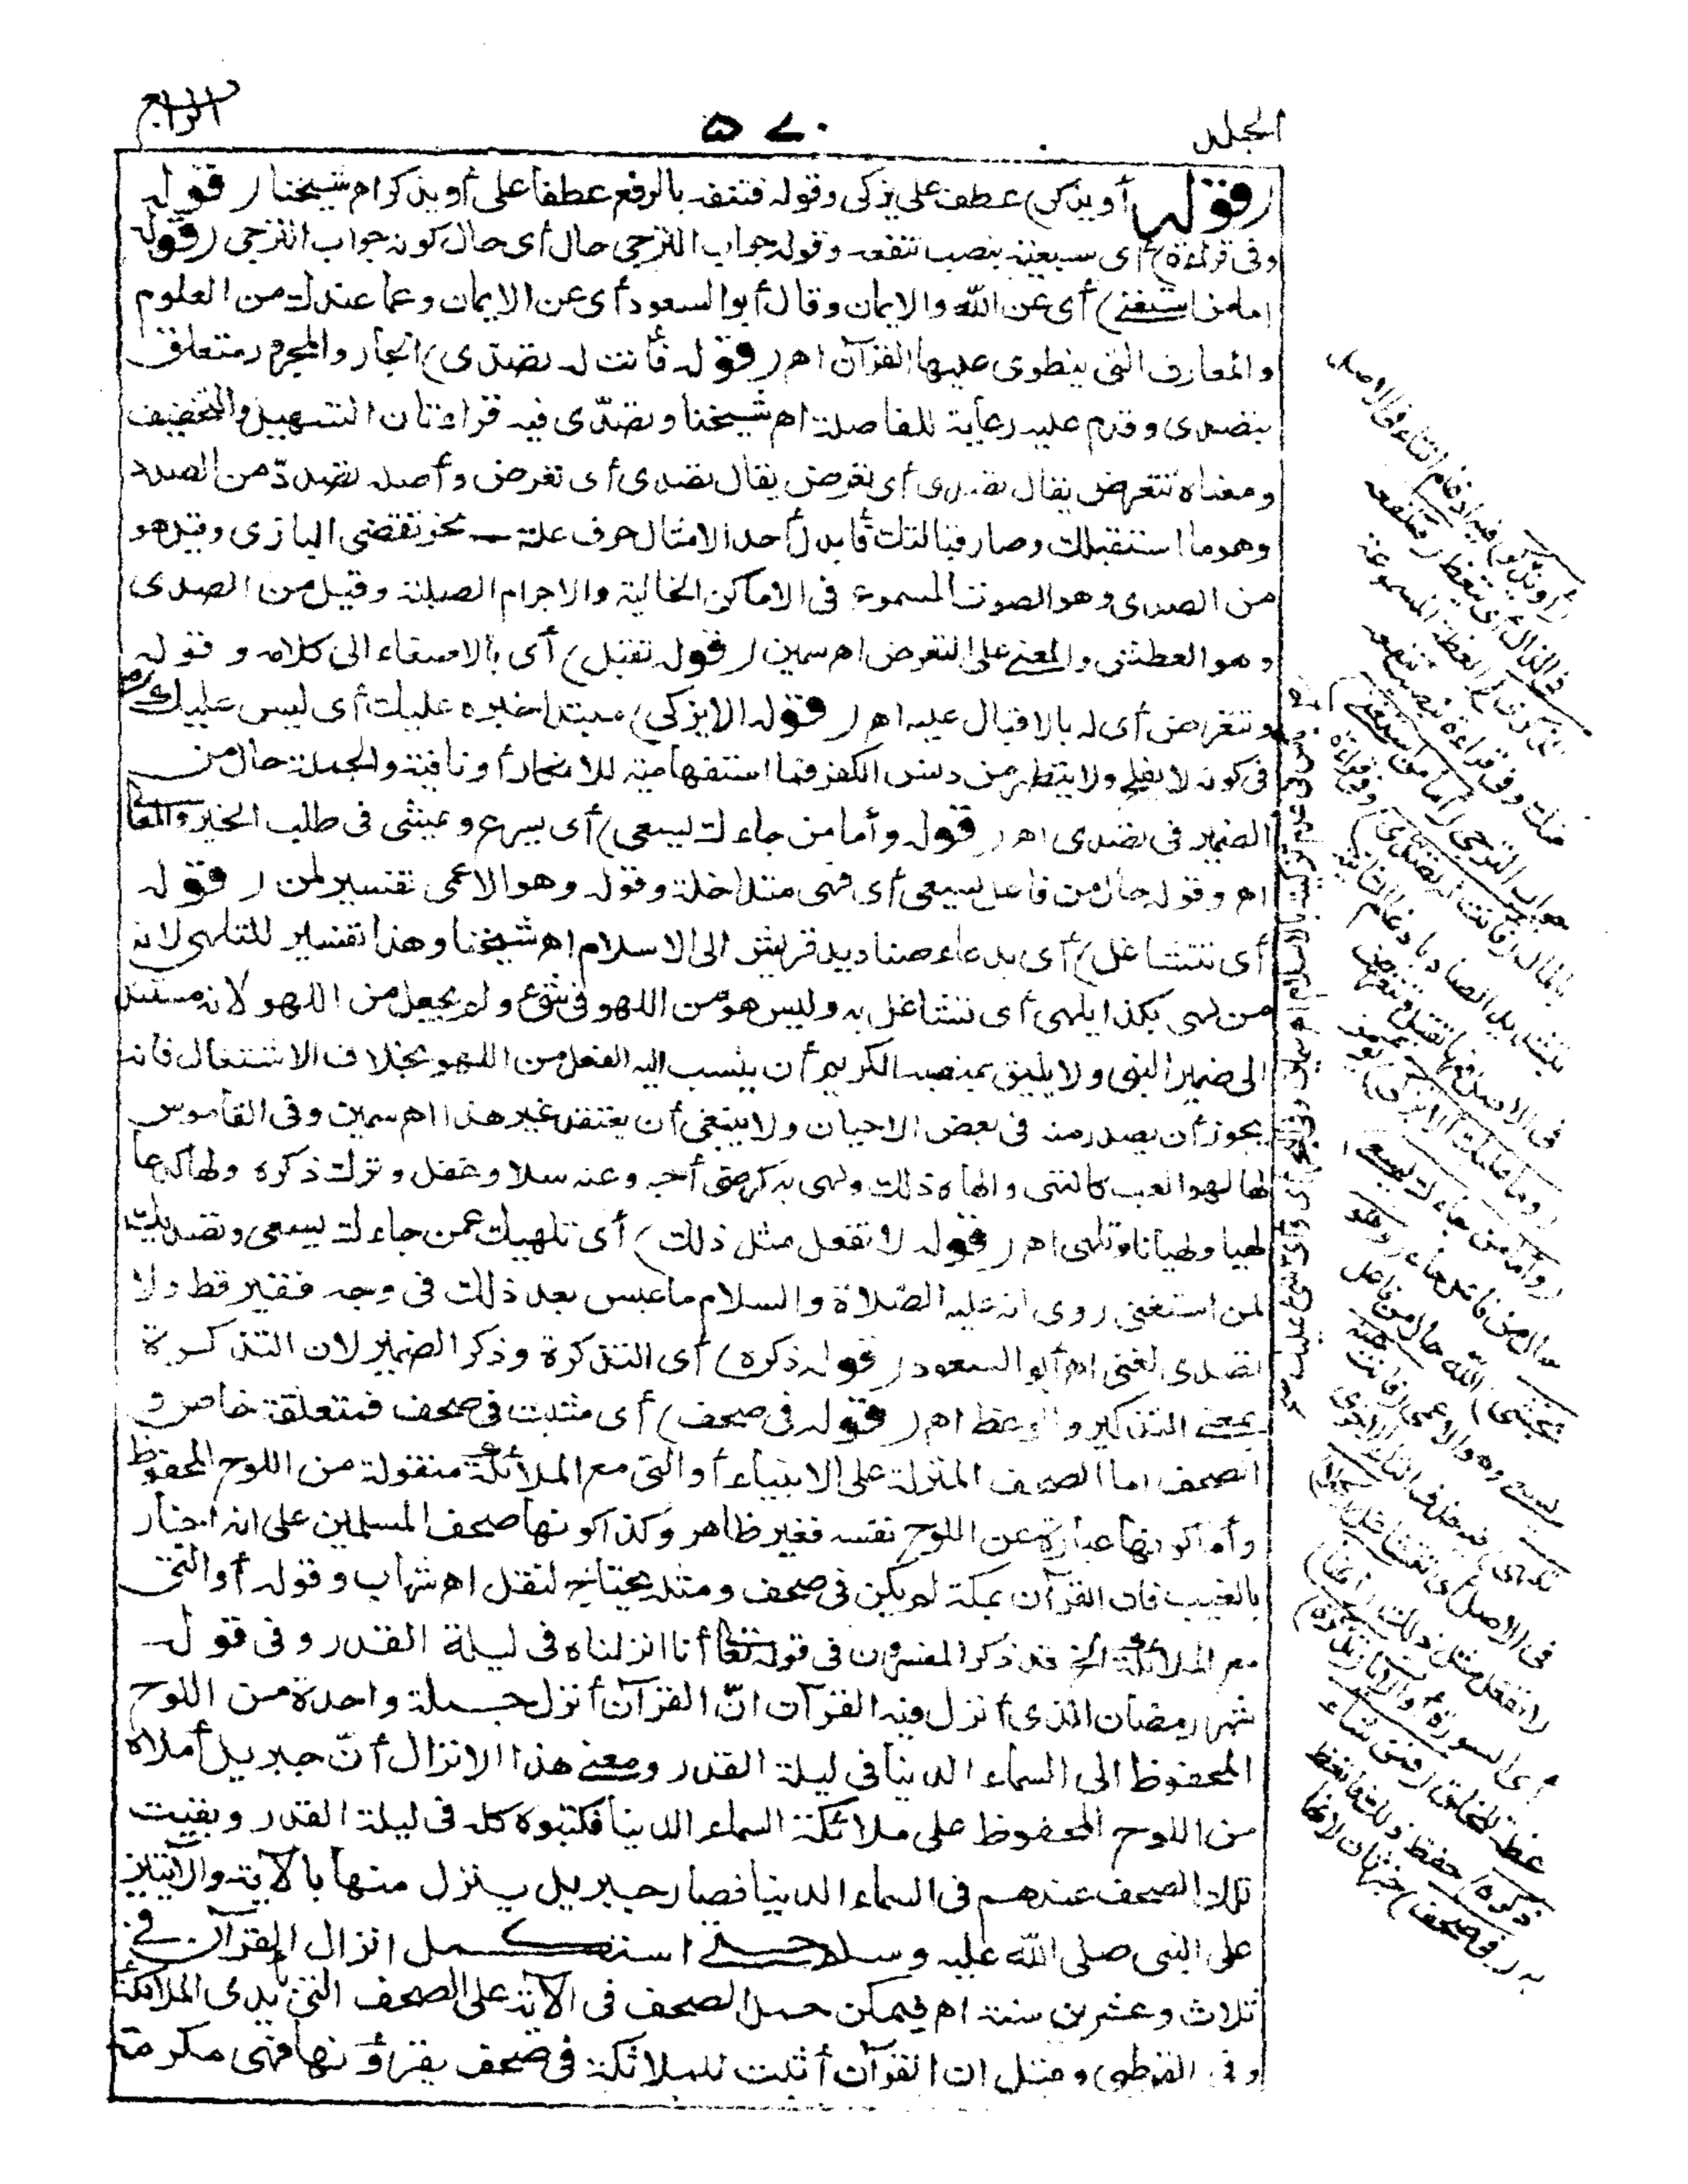 الجلد
٥٧٠
الرابع
(قوله أو يذكر) عطف على يزكى وقوله فتنفعه بالرفع عطفا على أو يذكر اه شيخنا (قوله
وفى قراءة) أى سبعية بنصب تنفعه وقوله جواب الترجى حال أى حال كونه جواب الترجى (قوله
اما من استغنى) أى عن الله والايمان وقال أبو السعود أى عن الايمان وعما عندك من العلوم
والمعارف التى ينطوى عليها القرآن اه (قوله فأنت له تصدى) الجار والمجرور متعلق
بتصدى وقدم عليه رعاية للفاصلة اه شيخنا وتصدّى فيه قراءتان التسهيل والتخفيف
ومعناه تتعرض يقال تصدى أى تعرض يقال تصدى أى تعرض وأصله تصددّ من الصدد
وهو ما استقبلك وصار قبالتك فأبدل أحد الامثال حرف علة نحو تقضى البازى وقيل هو
من الصدى وهو الصوت المسموع فى الاماكن الخالية والاجرام الصلبة وقيل من الصدى
وهو العطش والمعنى على التعرض اه سمين (قوله تقبل) أى بالاصغاء الى كلامه وقوله
وتتعرض أى له بالاقبال عليه اه (قوله الا يزكى) مبتدا خبره عليك أى ليس عليك
فى كونه لا يفلح ولا يتطهر من دنس الكفر فما استفهامية للانكار أو نافية والجملة حال من
الضمير فى تصدى اه (قوله وأما من جاءك يسعى) أى يسرع ويمشى فى طلب الخير
اه وقوله حال من فاعل يسعى أى فهى متداخلة وقوله وهو الاعمى تفسير لمن (قوله
أى تتشاغل) أى بدعاء صناديد قريش الى الاسلام اه شيخنا وهذا تفسير للتلهى لانه
من لهى بكذا يلهى أى تتشاغل به وليس هو من اللهو فى شئ ولم يجعل من اللهو لانه مسند
الى ضمير النبى ولا يليق بمنصبه الكريم أن ينسب اليه الفعل من اللهو بخلاف الاشتغال فانه
يجوز أن يصدر منه فى بعض الاحيان ولا ينبغى أن يعتقد غير هذا اه سمين وفى القاموس
لها لهوا لعب كالتهى وألهاه ذلك ولهى به كرضى أحبه وعنه سلا وغفل وترك ذكره ولها كدعا
لهيا ولهيانا وتلهى اه (قوله لا تفعل مثل ذلك) أى تلهيك عمن جاءك يسعى وتصديك
لمن استغنى روى انه عليه الصلاة والسلام ما عبس بعد ذلك فى وجه فقير قط ولا
تصدى لغنى اه أبو السعود (قوله ذكره) أى التذكرة وذكر الضمير لان التذكرة
بمعنى التذكير والوعظ اه (قوله فى صحف) أى مثبت فى صحف فمتعلقه خاص و
الصحف اما الصحف المنزلة على الانبياء أو التى مع الملائكة منقولة من اللوح المحفوظ
وأما كونها عبارة عن اللوح نفسه فغير ظاهر وكذا كونها صحف المسلمين على انه اخبار
بالغيب فان القرآن بمكة لم يكن فى صحف ومثله يحتاج لنقل اه شهاب وقوله أو التى
مع الملائكة الخ قد ذكر المفسرون فى قوله تعالى أنا انزلناه فى ليلة القدر وفى قول
شهر رمضان الذى أنزل فيه القرآن انّ القرآن أنزل جملة واحدة من اللوح
المحفوظ الى السماء الدنيا فى ليلة القدر ومعنى هذا الانزال أنّ جبريل أملاه
من اللوح المحفوظ على ملائكة السماء الدنيا فكتبوه كله فى ليلة القدر وبقيت
تلك الصحف عندهم فى السماء الدنيا فصار جبريل ينزل منها بالآية والآيتين
على النبى صلى الله عليه وسلم حتى استكمل انزال القرآن فى
ثلاث وعشرين سنة اه فيمكن حمل الصحف فى الآية على الصحف التى بأيدى الملائكة
وفى القرطبى وقيل ان القرآن أثبت للملائكة فى صحف يقرؤنها فهى مكرمة
(أو يذكر) فيه ادغام التاء فى الاصل
فى الذال أى يتعظ (فتنفعه
الذكرى) العظة المسموعة
منك وفى قراءة بنصب تنفعه
جواب الترجى (اما من استغنى)
بالمال (فأنت له تصدى) وفى قراءة
بتشديد الصاد بادغام التاء الثانية
فى الاصل فيها تقبل وتتعرض
(وما عليك الا يزكى) يؤمن
(وأما من جاءك يسعى)
حال من فاعل جاء (وهو
يخشى) الله حال من فاعل
يسعى وهو الاعمى (فأنت عنه
تلهى) فيه حذف التاء الاخرى
فى الاصل أى تتشاغل (كلا)
لا تفعل مثل ذلك (انها)
أى السورة أو الآيات (تذكرة)
عظة للخلق (فمن شاء
ذكره) حفظ ذلك فاتعظ
به (فى صحف) خبر ثان لانها